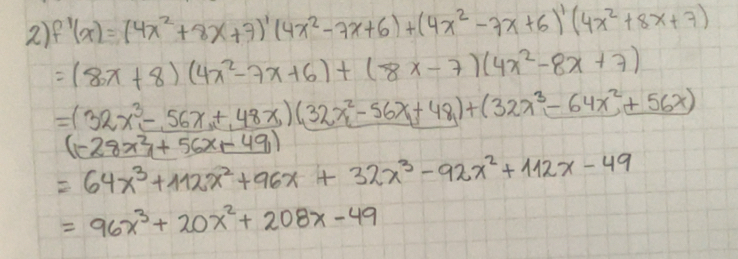 2) f'(x) = (4x² + 8x + 7)' (4x² - 7x + 6) + (4x² - 7x + 6)' (4x² + 8x + 7)
= (8x + 8) (4x² - 7x + 6) + (8x - 7)(4x² - 8x + 7)
= (32x³ - 56x + 48x)(32x² - 56x + 48) + (32x³ - 64x² + 56x)
(-28x² + 56x - 49)
= 64x³ + 112x² + 96x + 32x³ - 92x² + 112x - 49
= 96x³ + 20x² + 208x - 49